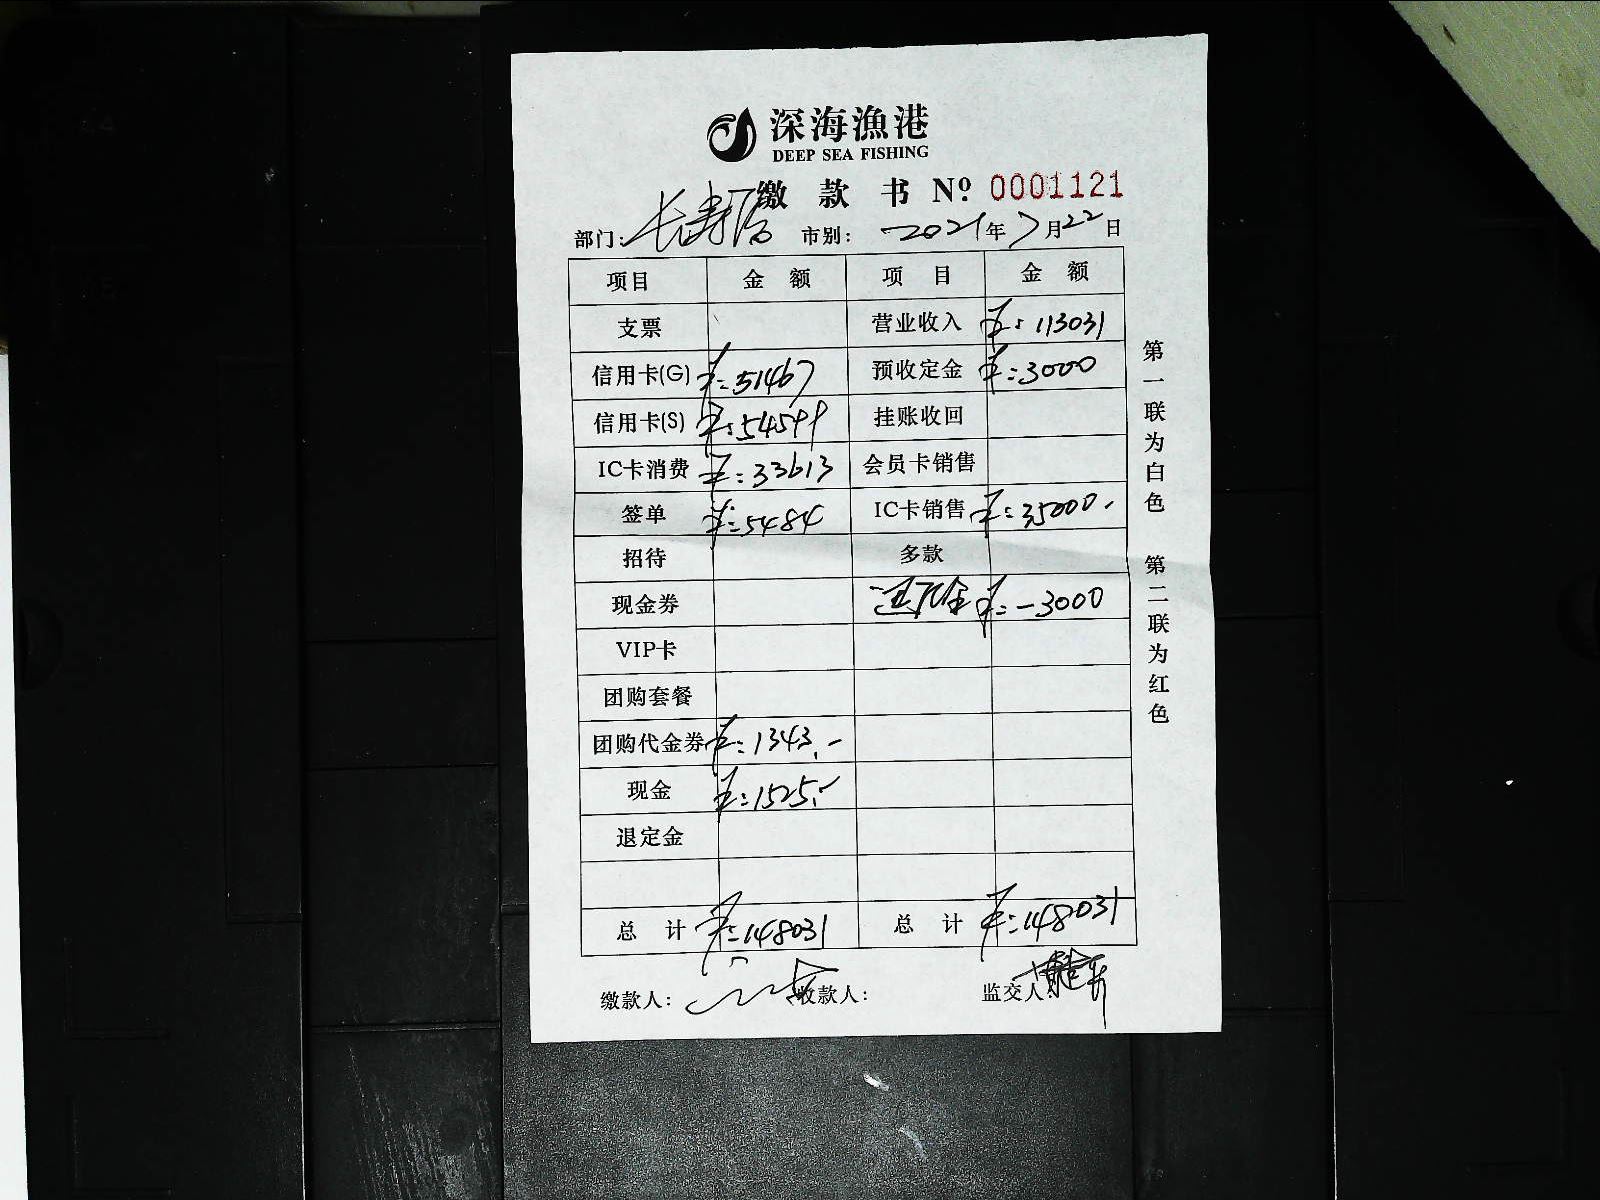 深海漁港
DEEP SEA FISHING
缴 款 书 Nº 0001121
部门: 长寿店 市别: 2021年7月22日
项目 金 额 项 目 金 额
支票 营业收入 ¥:113031
信用卡(G) ¥:51467 预收定金 ¥:3000
信用卡(S) ¥:54599 挂账收回
IC卡消费 ¥:33613 会员卡销售
签单 ¥:5484 IC卡销售 ¥:35000.
招待 多款
现金券 退定金 ¥:-3000
VIP卡
团购套餐
团购代金券 ¥:1343.-
现金 ¥:1525.-
退定金
总 计 ¥:148031 总 计 ¥:148031
缴款人: 收款人: 监交人:
第一联为白色 第二联为红色